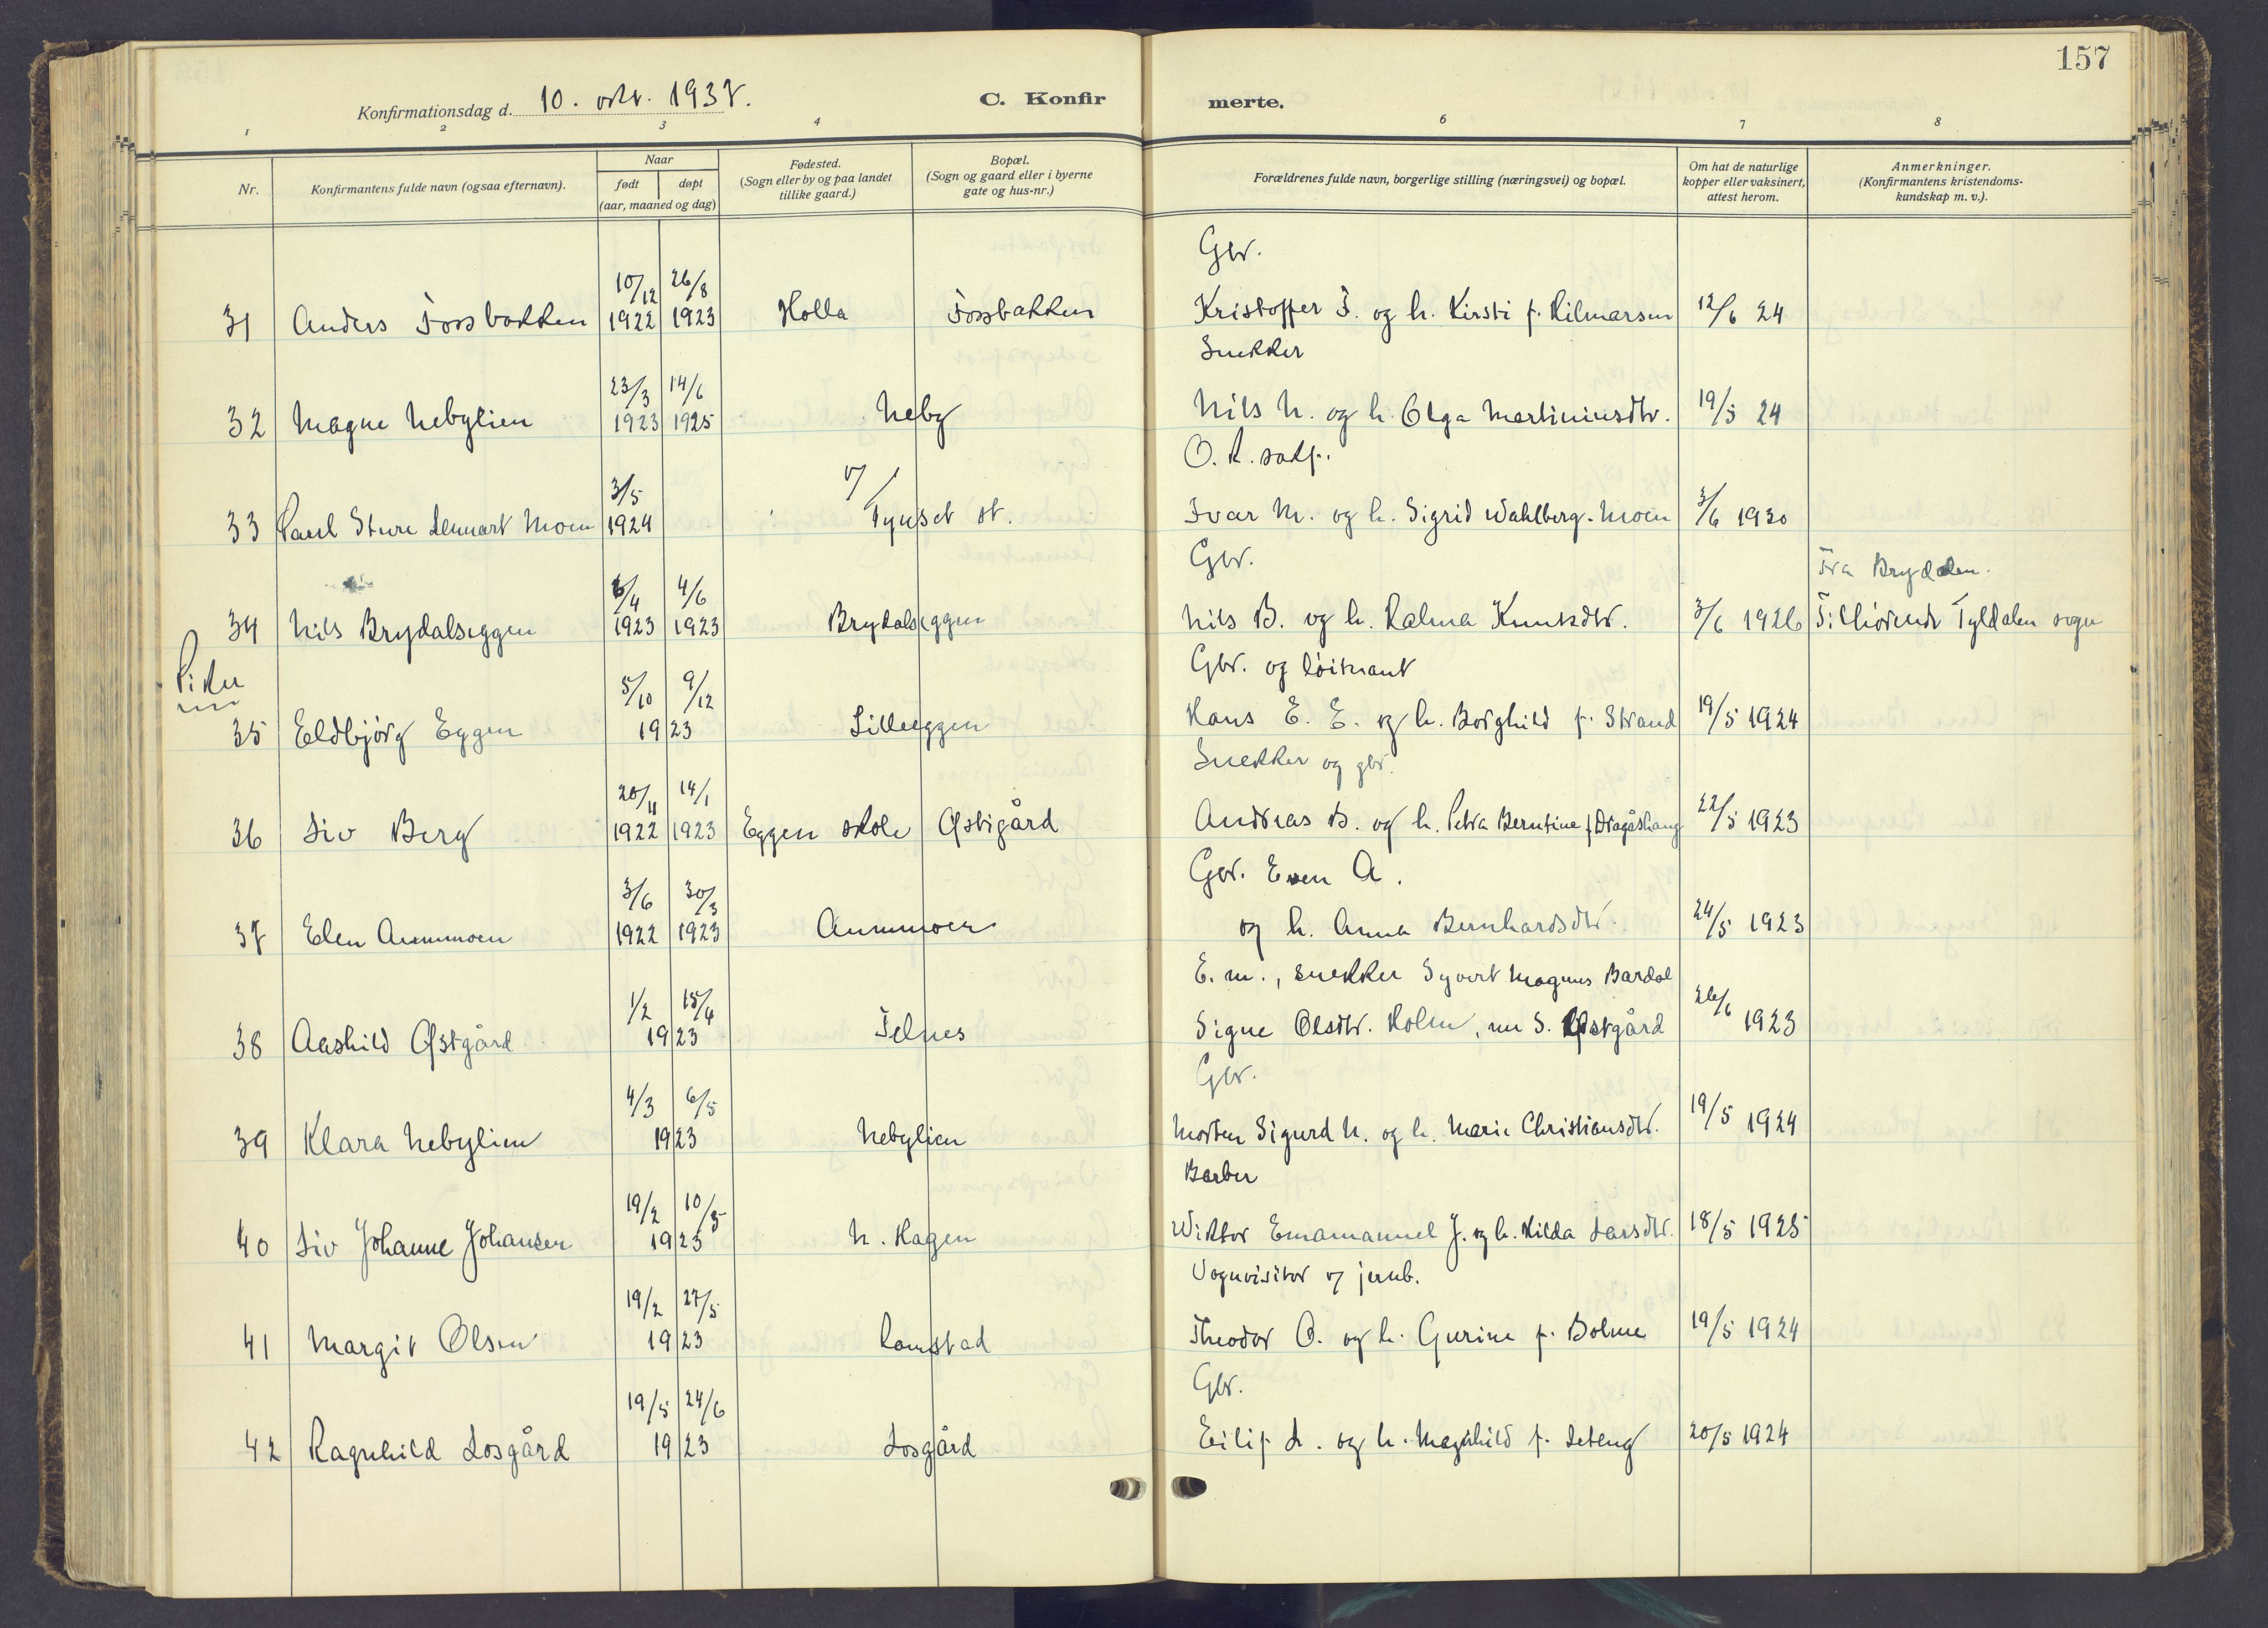 157
Konfirmationsdag d. 10. okt. 1937.
C. Konfirmerte.
1 2 3 4 6 7 8
Nr.
Konfirmantens fulde navn (ogsaa efternavn).
Naar
født døpt
(aar, maaned og dag)
Fødested.
(Sogn eller by og paa landet
tillike gaard.)
Bopæl.
(Sogn og gaard eller i byerne
gate og hus-nr.)
Forældrenes fulde navn, borgerlige stilling (næringsvei) og bopæl.
Om hat de naturlige
kopper eller vaksinert,
attest herom.
Anmerkninger.
(Konfirmantens kristendoms-
kundskap m. v.).
Gbr.
10/12 26/8
31 Anders Fossbakken 1922 1923 Holla Fossbakken Kristoffer F. og h. Kirsti f. Hilmarsen 12/6 24
Snekker
23/3 14/6
32 Magne Nebylien 1923 1925 Neby Nils N. og h. Olga Martiniusdtr. 19/5 24
O.R.sakf.
3/5
33 Paul Sture Lennart Moen 1924 Tynset st. Ivar M. og h. Sigrid Wahlberg-Moen 3/6 1930
Gbr. Fra Brydalen.
6/4 4/6
34 Nils Brydalseggen 1923 1923 Brydalseggen Nils B. og h. Halma Knutsdtr. 3/6 1926 Tilhørende Tyldalen sogn
Piker
Gbr. og løitnant
5/10 9/12
35 Eldbjørg Eggen 1923 Lilleeggen Hans E. E. og h. Borghild f. Strand 19/5 1924
Snekker og gbr.
20/11 14/1
36 Liv Berg 1922 1923 Eggen skole Østigård Andreas B. og h. Petra Berntine f. Dragåshaug 22/5 1923
Gbr. Even A.
3/6 30/3
37 Elen Aummoen 1922 1923 Aummoen og h. Anna Bernhardsdtr. 24/5 1923
E.m., snekker Syvert Magnus Bardal
1/2 15/4
38 Aashild Østgård 1923 Telnes Signe Olsdtr. Holm, nu S. Østgård 26/6 1923
Gbr.
4/3 6/5
39 Klara Nebylien 1923 Nebylien Morten Sigurd N. og h. Marie Christiansdtr. 19/5 1924
Barber
19/2 10/5
40 Liv Johanne Johansen 1923 N. Hagen Wiktor Emamanuel J. og h. Hilda Larsdtr. 18/5 1925
Vognvisitør v/ jernb.
19/2 27/5
41 Margit Olsen 1923 Ramstad Theodor O. og h. Gurine f. Bolme 19/5 1924
Gbr.
19/5 24/6
42 Ragnhild Losgård 1923 Losgård Eilif L. og h. Magnhild f. Leteng 20/5 1924